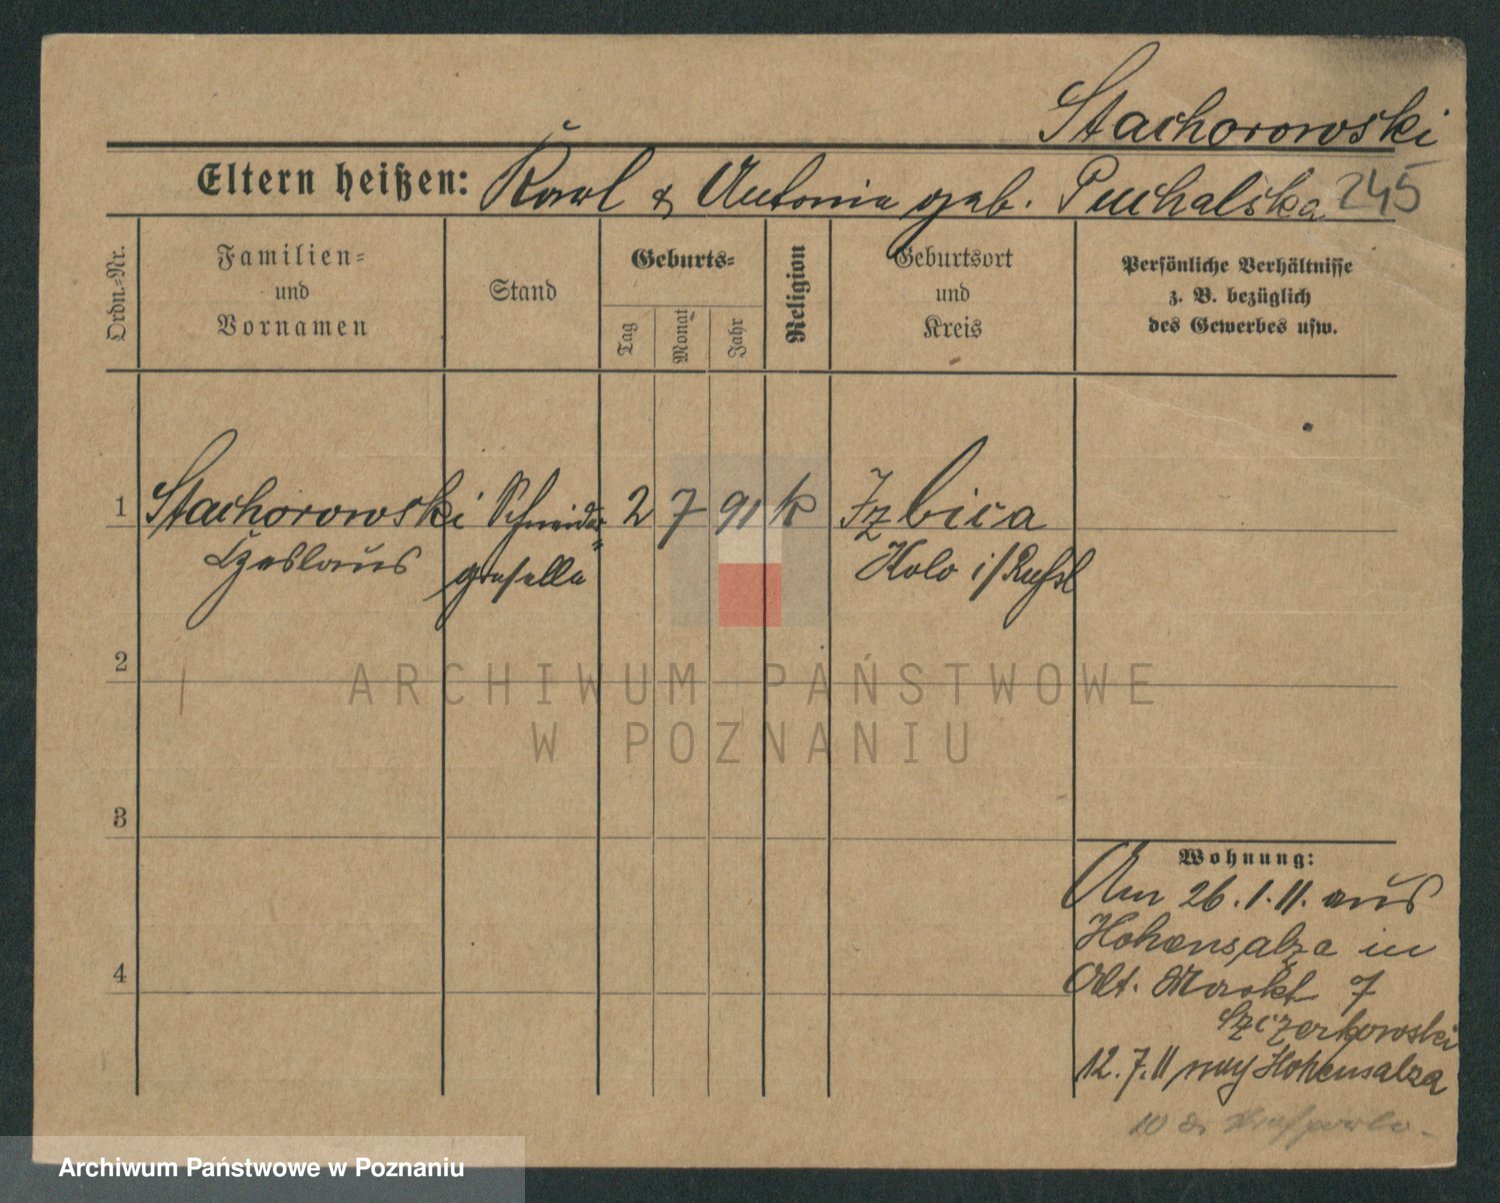 Stachorowski
Eltern heißen: Karl & Antonie geb. Puchalska 245
Ordn.=Nr.
Familien=
und
Vornamen
Stand
Geburts=
Tag
Monat
Jahr
Religion
Geburtsort
und
Kreis
Persönliche Verhältnisse
z. B. bezüglich
des Gewerbes usw.
1 Stachorowski Schneider= 2 7 91 k Izbica
Czeslaus geselle Kolo i/Rußl
2
3
4
Wohnung:
Am 26.1.11. aus
Hohensalza in
Alt. Markt 7
12.7.11 nach Hohensalza
ARCHIWUM PAŃSTWOWE
W POZNANIU
Archiwum Państwowe w Poznaniu